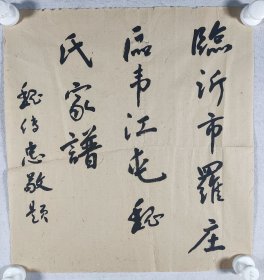 臨沂市羅庄
區韦江屯魏
氏家譜
魏传忠敬題